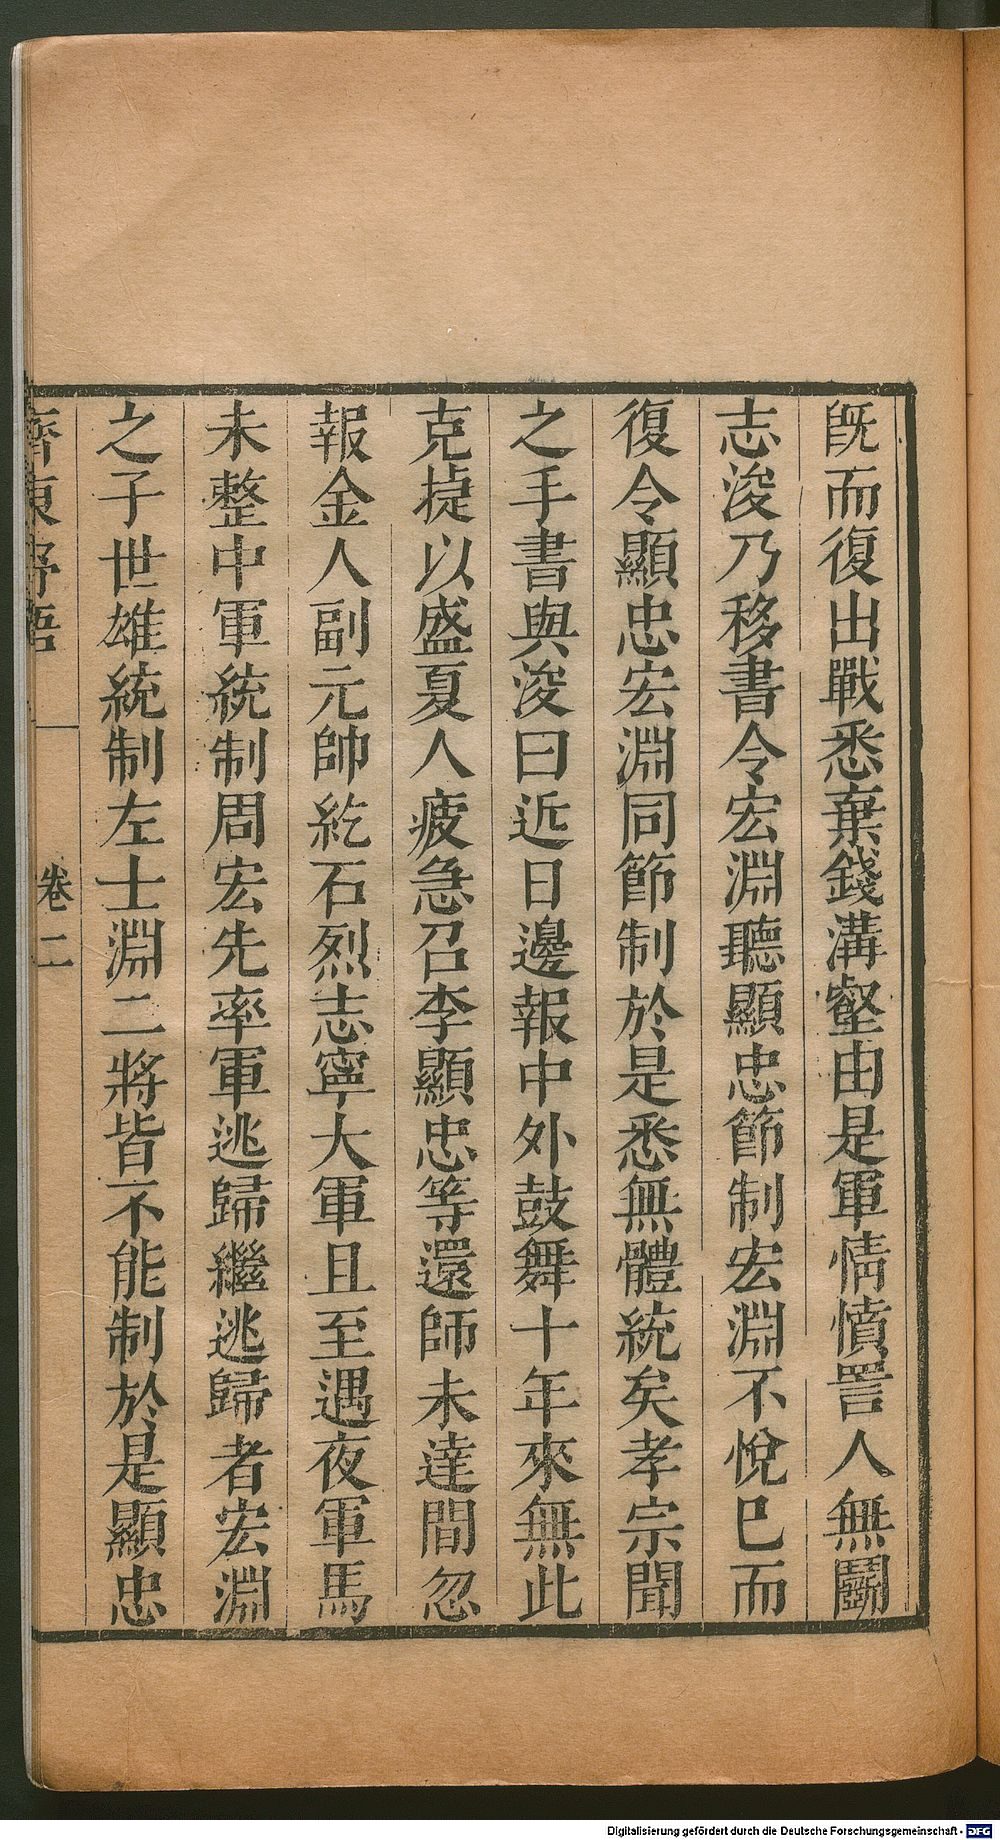 既而復出戰悉棄錢溝壑由是軍情憤詈人無鬭
志浚乃移書令宏淵聽顯忠節制宏淵不悅巳而
復令顯忠宏淵同節制於是悉無體統矣孝宗聞
之手書與浚曰近日邊報中外鼓舞十年來無此
克捷以盛夏人疲急召李顯忠等還師未達間忽
報金人副元帥紇石烈志寧大軍且至遇夜軍馬
未整中軍統制周宏先率軍逃歸繼逃歸者宏淵
之子世雄統制左士淵二將皆不能制於是顯忠
齊東野語 卷二
Digitalisierung gefördert durch die Deutsche Forschungsgemeinschaft - DFG